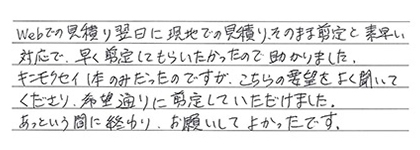 Webでの見積り翌日に現地での見積り、そのまま剪定と素早い
対応で、早く剪定してもらいたかったので助かりました。
キンモクセイ1本のみだったのですが、こちらの要望をよく聞いて
くださり、希望通りに剪定していただけました。
あっという間に終わり、お願いしてよかったです。